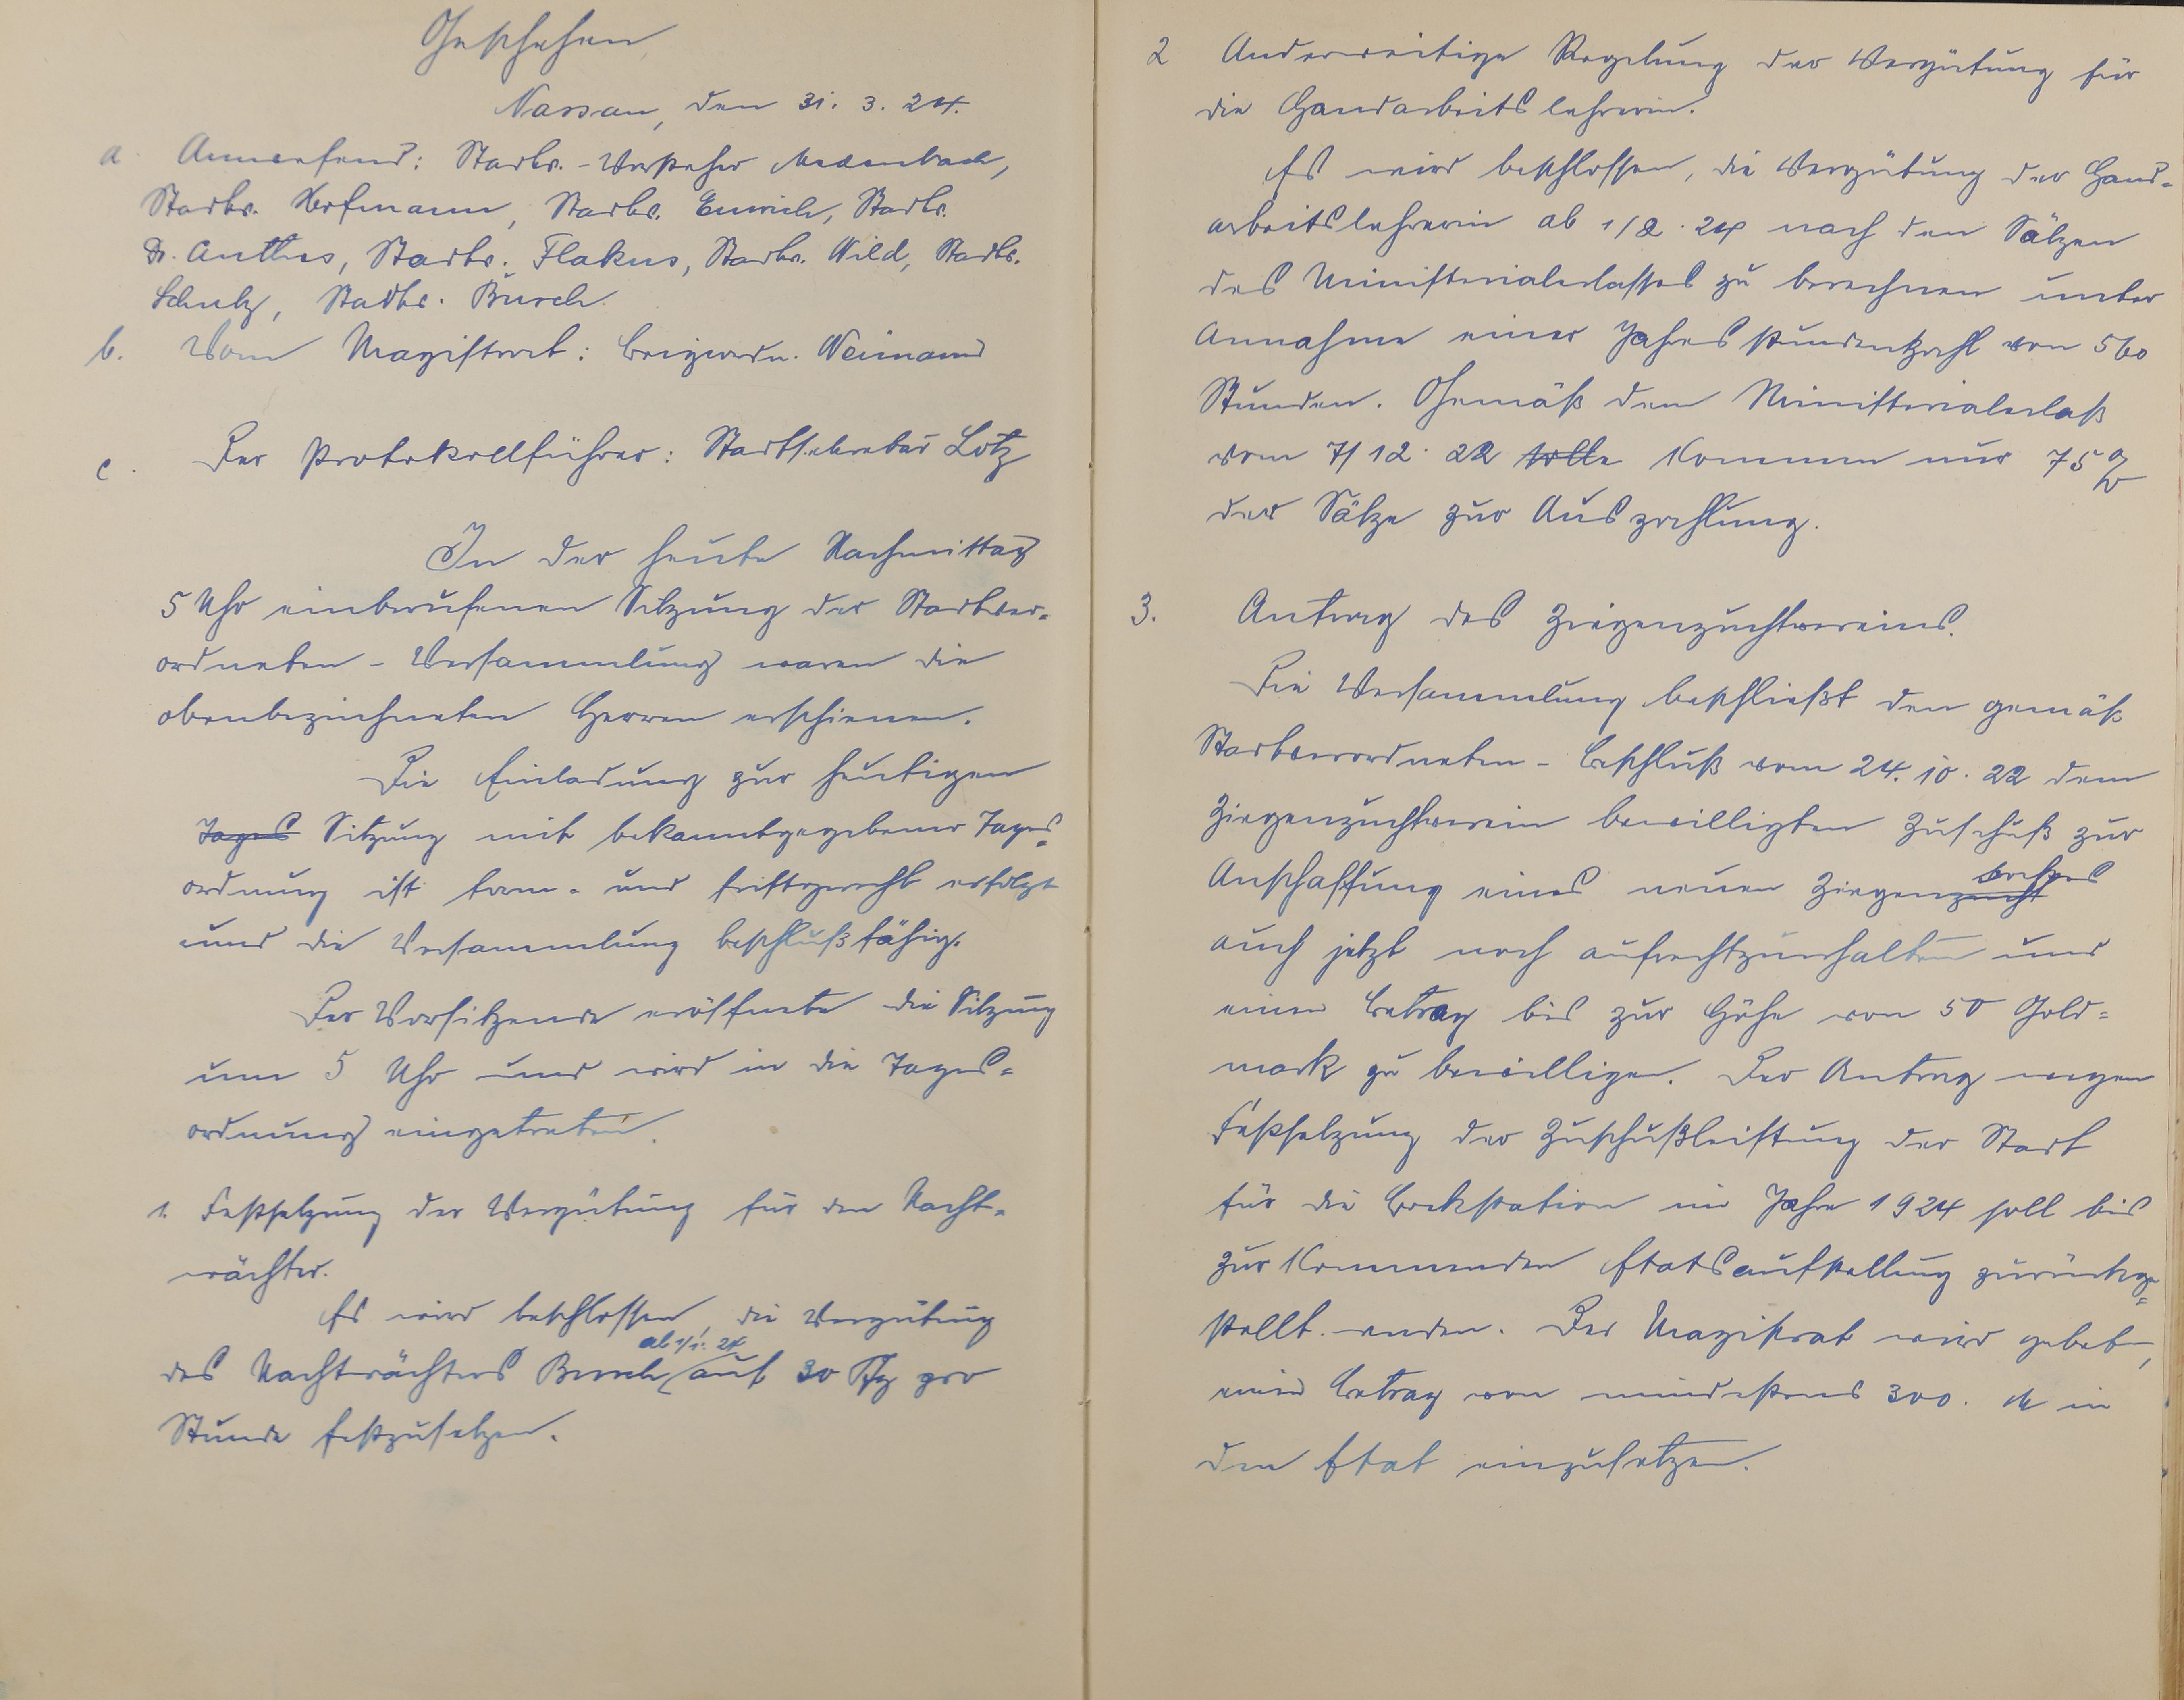 Geschehen
Nassau, den 31. 3. 24.
a. Anwesend: Stadtv.-Vorsteher Medenbach,
Stadtv. Hofmann, Stadtv. Emrich, Stadtv.
Dr. Anthes, Stadtv. Flakus, Stadtv. Wild, Stadtv.
Schulz, Stadtv. Busch.
b. Vom Magistrat: Beigeordn. Weimand
c. Der Protokollführer: Stadtsekretär Lotz
In der heute Nachmittag
5 Uhr einberufenen Sitzung der Stadtver=
ordneten-Versammlung waren die
obenbezeichneten Herren erschienen.
Die Einladung zur heutigen
Tages Sitzung mit bekanntgegebener Tages=
ordnung ist form- und fristgerecht erfolgt
und die Versammlung beschlußfähig.
Der Vorsitzende eröffnete die Sitzung
um 5 Uhr und wird in die Tages=
ordnung eingetreten.
1. Festsetzung der Vergütung für den Nacht=
wächter.
Es wird beschlossen, die Vergütung
ab 1/1. 24
des Nachtwächters Busch auf 30 Pfg pro
Stunde festzusetzen.
2 Anderweitige Regelung der Vergütung für
die Handarbeitslehrerin.
Es wird beschlossen, die Vergütung der Hand=
arbeitslehrerin ab 1/2. 24 nach den Sätzen
des Ministerialerlasses zu berechnen unter
Annahme einer Jahresstundenzahl von 560
Stunden. Gemäß dem Ministerialerlaß
vom 7/12. 22 solle kommen nur 75 %
der Sätze zur Auszahlung.
3. Antrag des Ziegenzuchtvereins.
Die Versammlung beschließt den gemäß
Stadtverordneten-Beschluß vom 24. 10. 22 dem
Ziegenzuchtverein bewilligten Zuschuß zur
bockes
Anschaffung eines neuen Ziegenzucht
auch jetzt noch aufrechtzuerhalten und
einen Betrag bis zur Höhe von 50 Gold=
mark zu bewilligen. Der Antrag wegen
Festsetzung der Zuschußleistung der Stadt
für die Bockstation im Jahre 1924 soll bis
zur kommenden Etatsaufstellung zurückge=
stellt werden. Der Magistrat wird gebeten,
einen Betrag von mindestens 300. M in
den Etat einzusetzen.